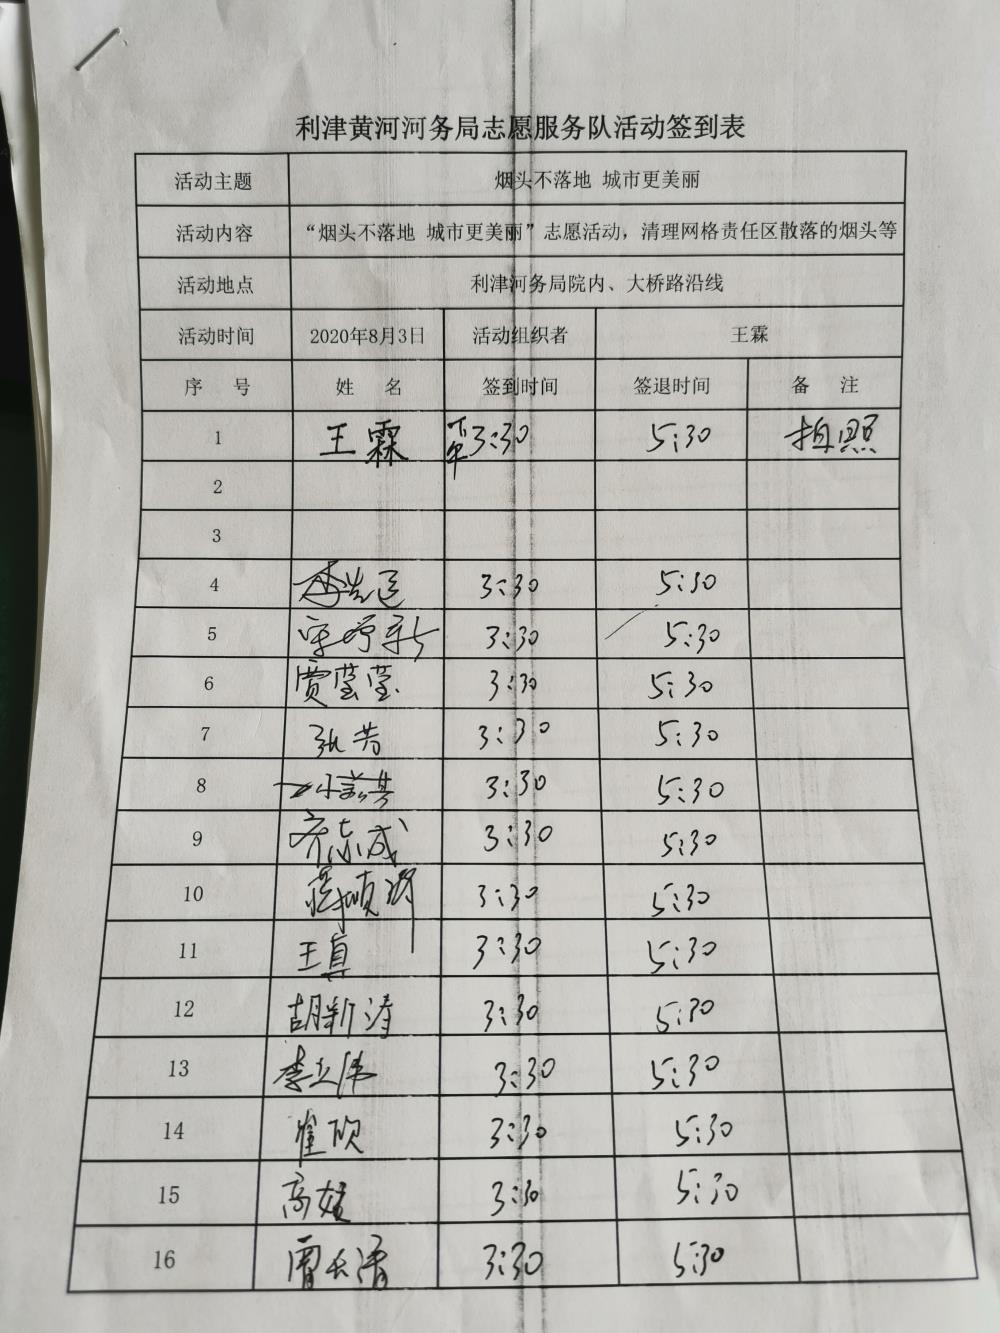 利津黄河河务局志愿服务队活动签到表
活动主题 烟头不落地 城市更美丽
活动内容 “烟头不落地 城市更美丽”志愿活动，清理网格责任区散落的烟头等
活动地点 利津河务局院内、大桥路沿线
活动时间 2020年8月3日 活动组织者 王霖
序 号 姓 名 签到时间 签退时间 备 注
1 王霖 下午3:30 5:30 拍照
2
3
4 3:30 5:30
5 3:30 5:30
6 贾莹莹 3:30 5:30
7 张芳 3:30 5:30
8 3:30 5:30
9 齐志成 3:30 5:30
10 3:30 5:30
11 王真 3:30 5:30
12 胡新涛 3:30 5:30
13 李立伟 3:30 5:30
14 崔欣 3:30 5:30
15 高媛 3:30 5:30
16 3:30 5:30